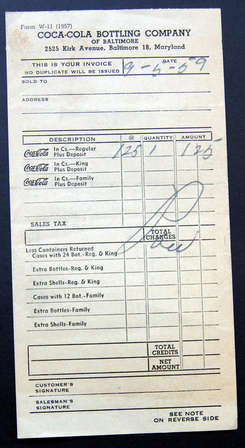 Form W-11 (1957)
COCA-COLA BOTTLING COMPANY
OF BALTIMORE
2525 Kirk Avenue, Baltimore 18, Maryland
THIS IS YOUR INVOICE
NO DUPLICATE WILL BE ISSUED
DATE
9-5-59
SOLD TO
ADDRESS
DESCRIPTION @ QUANTITY AMOUNT
Coca-Cola In Cs.—Regular Plus Deposit 125 1 1 25
Coca-Cola In Cs.—King Plus Deposit
Coca-Cola In Cs.—Family Plus Deposit
SALES TAX
TOTAL CHARGES
Paid
Less Containers Returned
Cases with 24 Bot.-Reg. & King
Extra Bottles-Reg. & King
Extra Shells-Reg. & King
Cases with 12 Bot.-Family
Extra Bottles-Family
Extra Shells-Family
TOTAL CREDITS
NET AMOUNT
CUSTOMER'S SIGNATURE
SALESMAN'S SIGNATURE
SEE NOTE
ON REVERSE SIDE